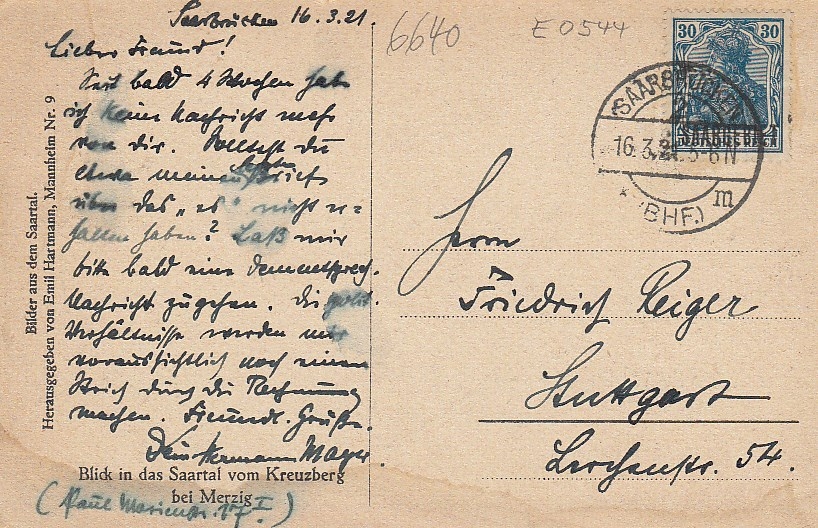 Saarbrücken 16.3.21.
Lieber Freund!
Seit bald 4 Wochen habe
ich keine Nachricht mehr
von dir. Solltest Du
etwa meinen letzten Brief
über das „es“ nicht er-
halten haben? Laß mir
bitte bald eine dementsprech.
Nachricht zugehen. Die polit.
Verhältnisse werden mir
voraussichtlich noch einen
Strich durch die Rechnung
machen. Freundl. Grüße.
Dein Hermann Mayer.
Blick in das Saartal vom Kreuzberg
bei Merzig
(Paul Marienstr. 17 I)
Bilder aus dem Saartal.
Herausgegeben von Emil Hartmann, Mannheim Nr. 9
6640
E 0544
30 30
SAARGEBIET
SAARBRÜCKEN
16.3.21. 5-6N
* (BHF.) m
Herrn
Friedrich Reiger
Stuttgart
Lerchenstr. 54.